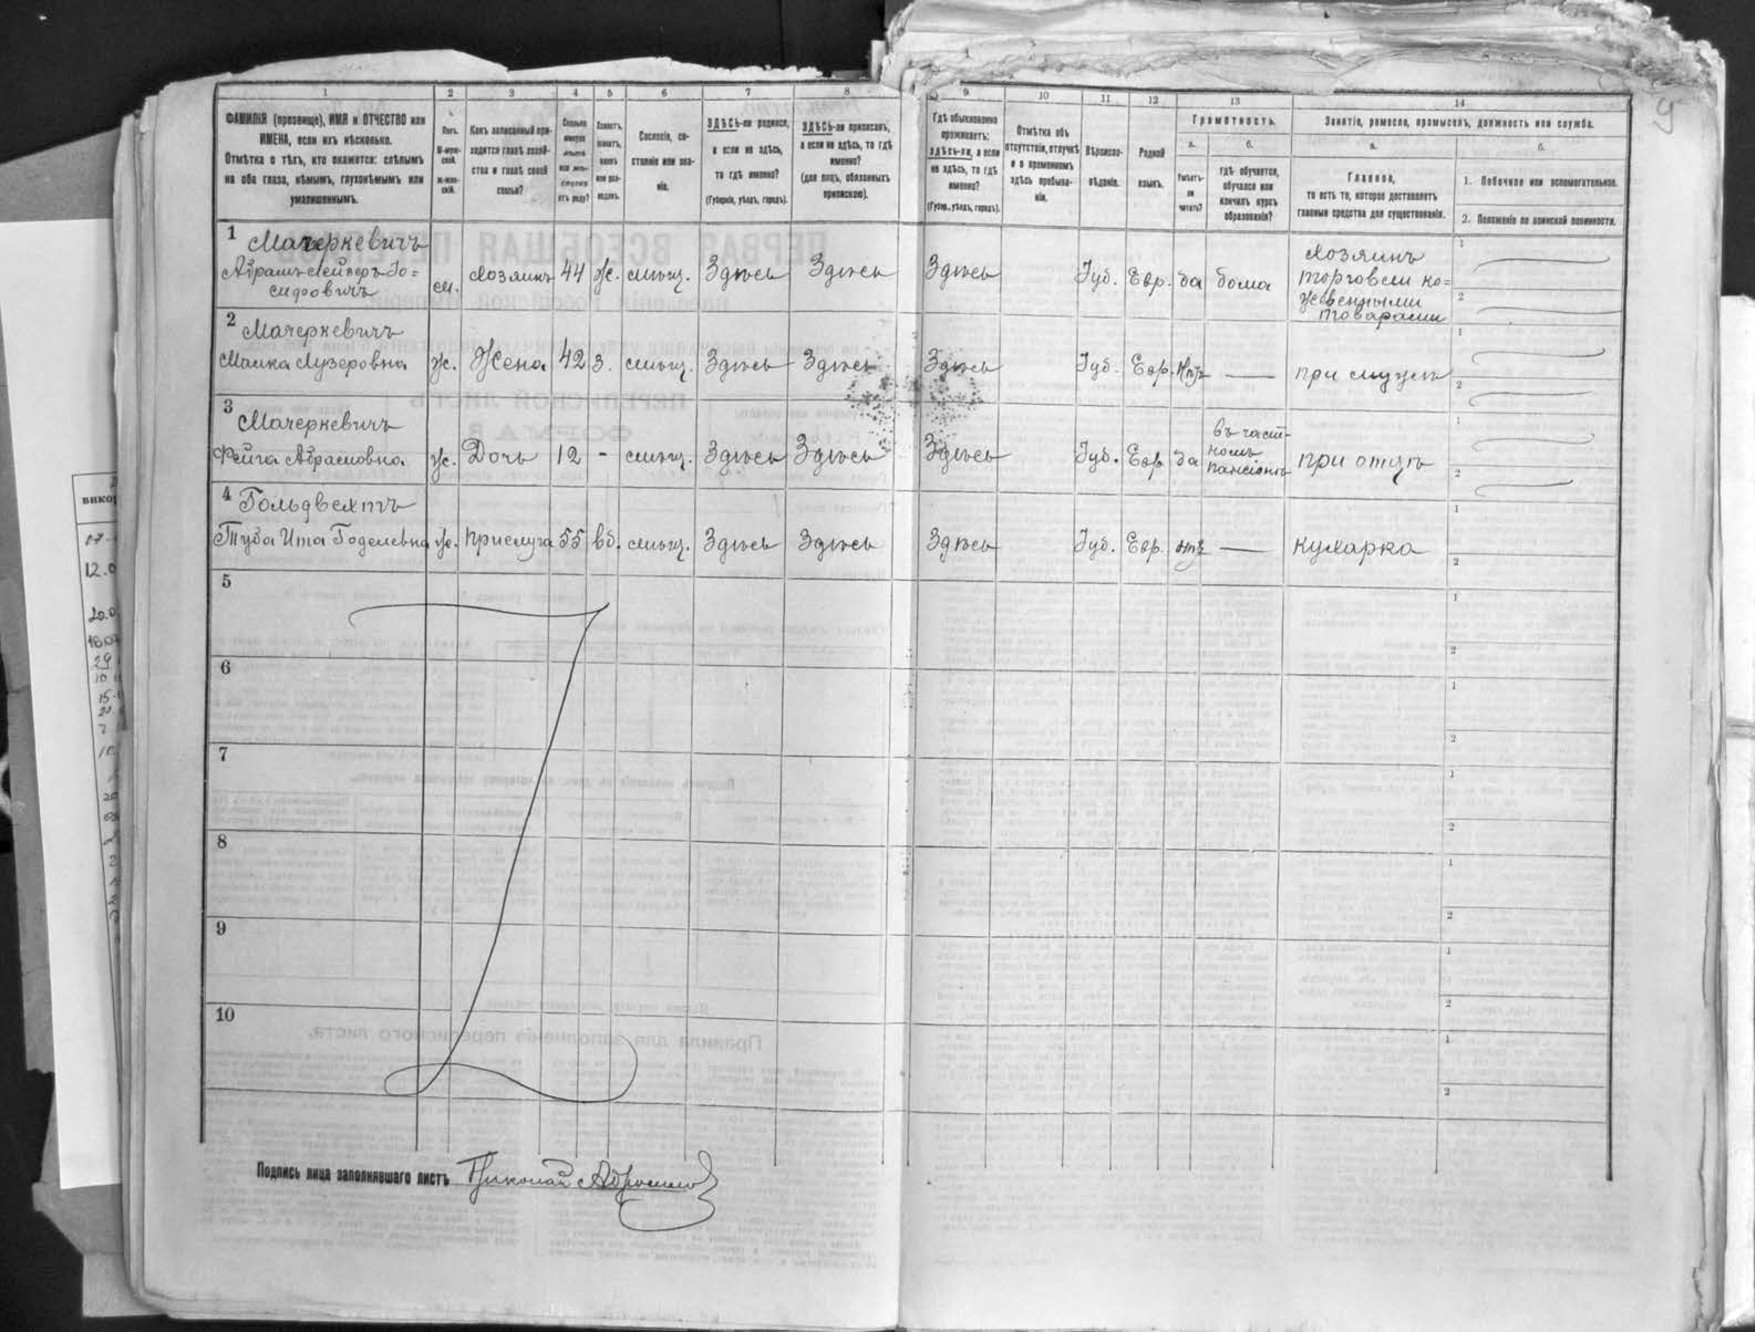 1 2 3 4 5 6 7 8 9 10 11 12 13 14
ФАМИЛІЯ (прозвище), ИМЯ и ОТЧЕСТВО или
ИМЕНА, если ихъ нѣсколько.
Отмѣтка о тѣхъ, кто окажется: слѣпымъ
на оба глаза, нѣмымъ, глухонѣмымъ или
умалишеннымъ.
Полъ.
Какъ записанный при-
ходится главѣ хозяй-
ства и главѣ своей
семьи?
Сословіе, со-
стояніе или зва-
ніе.
ЗДѢСЬ-ли родился,
а если не здѣсь,
то гдѣ именно?
(Губернія, уѣздъ, городъ).
ЗДѢСЬ-ли приписанъ,
а если не здѣсь, то гдѣ
именно?
(для лицъ, обязанныхъ
припискою).
Гдѣ обыкновенно
проживаетъ:
здѣсь-ли, а если
не здѣсь, то гдѣ
именно?
(Губер., уѣздъ, городъ).
Отмѣтка объ
отсутствіи, отлучкѣ
и о временномъ
здѣсь пребыва-
ніи.
Вѣроиспо-
вѣданіе.
Родной
языкъ.
Грамотность.
а.
Умѣетъ-
ли
читать?
б.
гдѣ обучается,
обучался или
кончилъ курсъ
образованія?
Занятіе, ремесло, промыселъ, должность или служба.
а.
Главное,
то есть то, которое доставляетъ
главныя средства для существованія.
б.
1. Побочное или вспомогательное.
2. Положеніе по воинской повинности.
1 Мачеркевичъ
Абрамъ-Лейзеръ Іо=
сифовичъ
м. Хозяинъ 44 Ж. мѣщ. Здѣсь Здѣсь Здѣсь Іуд. Евр. да дома
Хозяинъ
торговли ко=
жевенными
товарами
1
2
2 Мачеркевичъ
Малка Лузеровна ж. Жена 42 З. мѣщ. Здѣсь Здѣсь Здѣсь Іуд. Евр. нѣтъ — при мужѣ
1
2
3 Мачеркевичъ
Фейга Абрамовна ж. Дочь 12 - мѣщ. Здѣсь Здѣсь Здѣсь Іуд. Евр. да
въ част-
номъ
пансіонѣ
при отцѣ
1
2
4 Гольдвехтъ
Туба Ита Годелевна ж. прислуга 55 вд. мѣщ. Здѣсь Здѣсь Здѣсь Іуд. Евр. нѣтъ — кухарка
1
2
5
1
2
6
1
2
7
1
2
8
1
2
9
1
2
10
1
2
Подпись лица заполнявшаго листъ